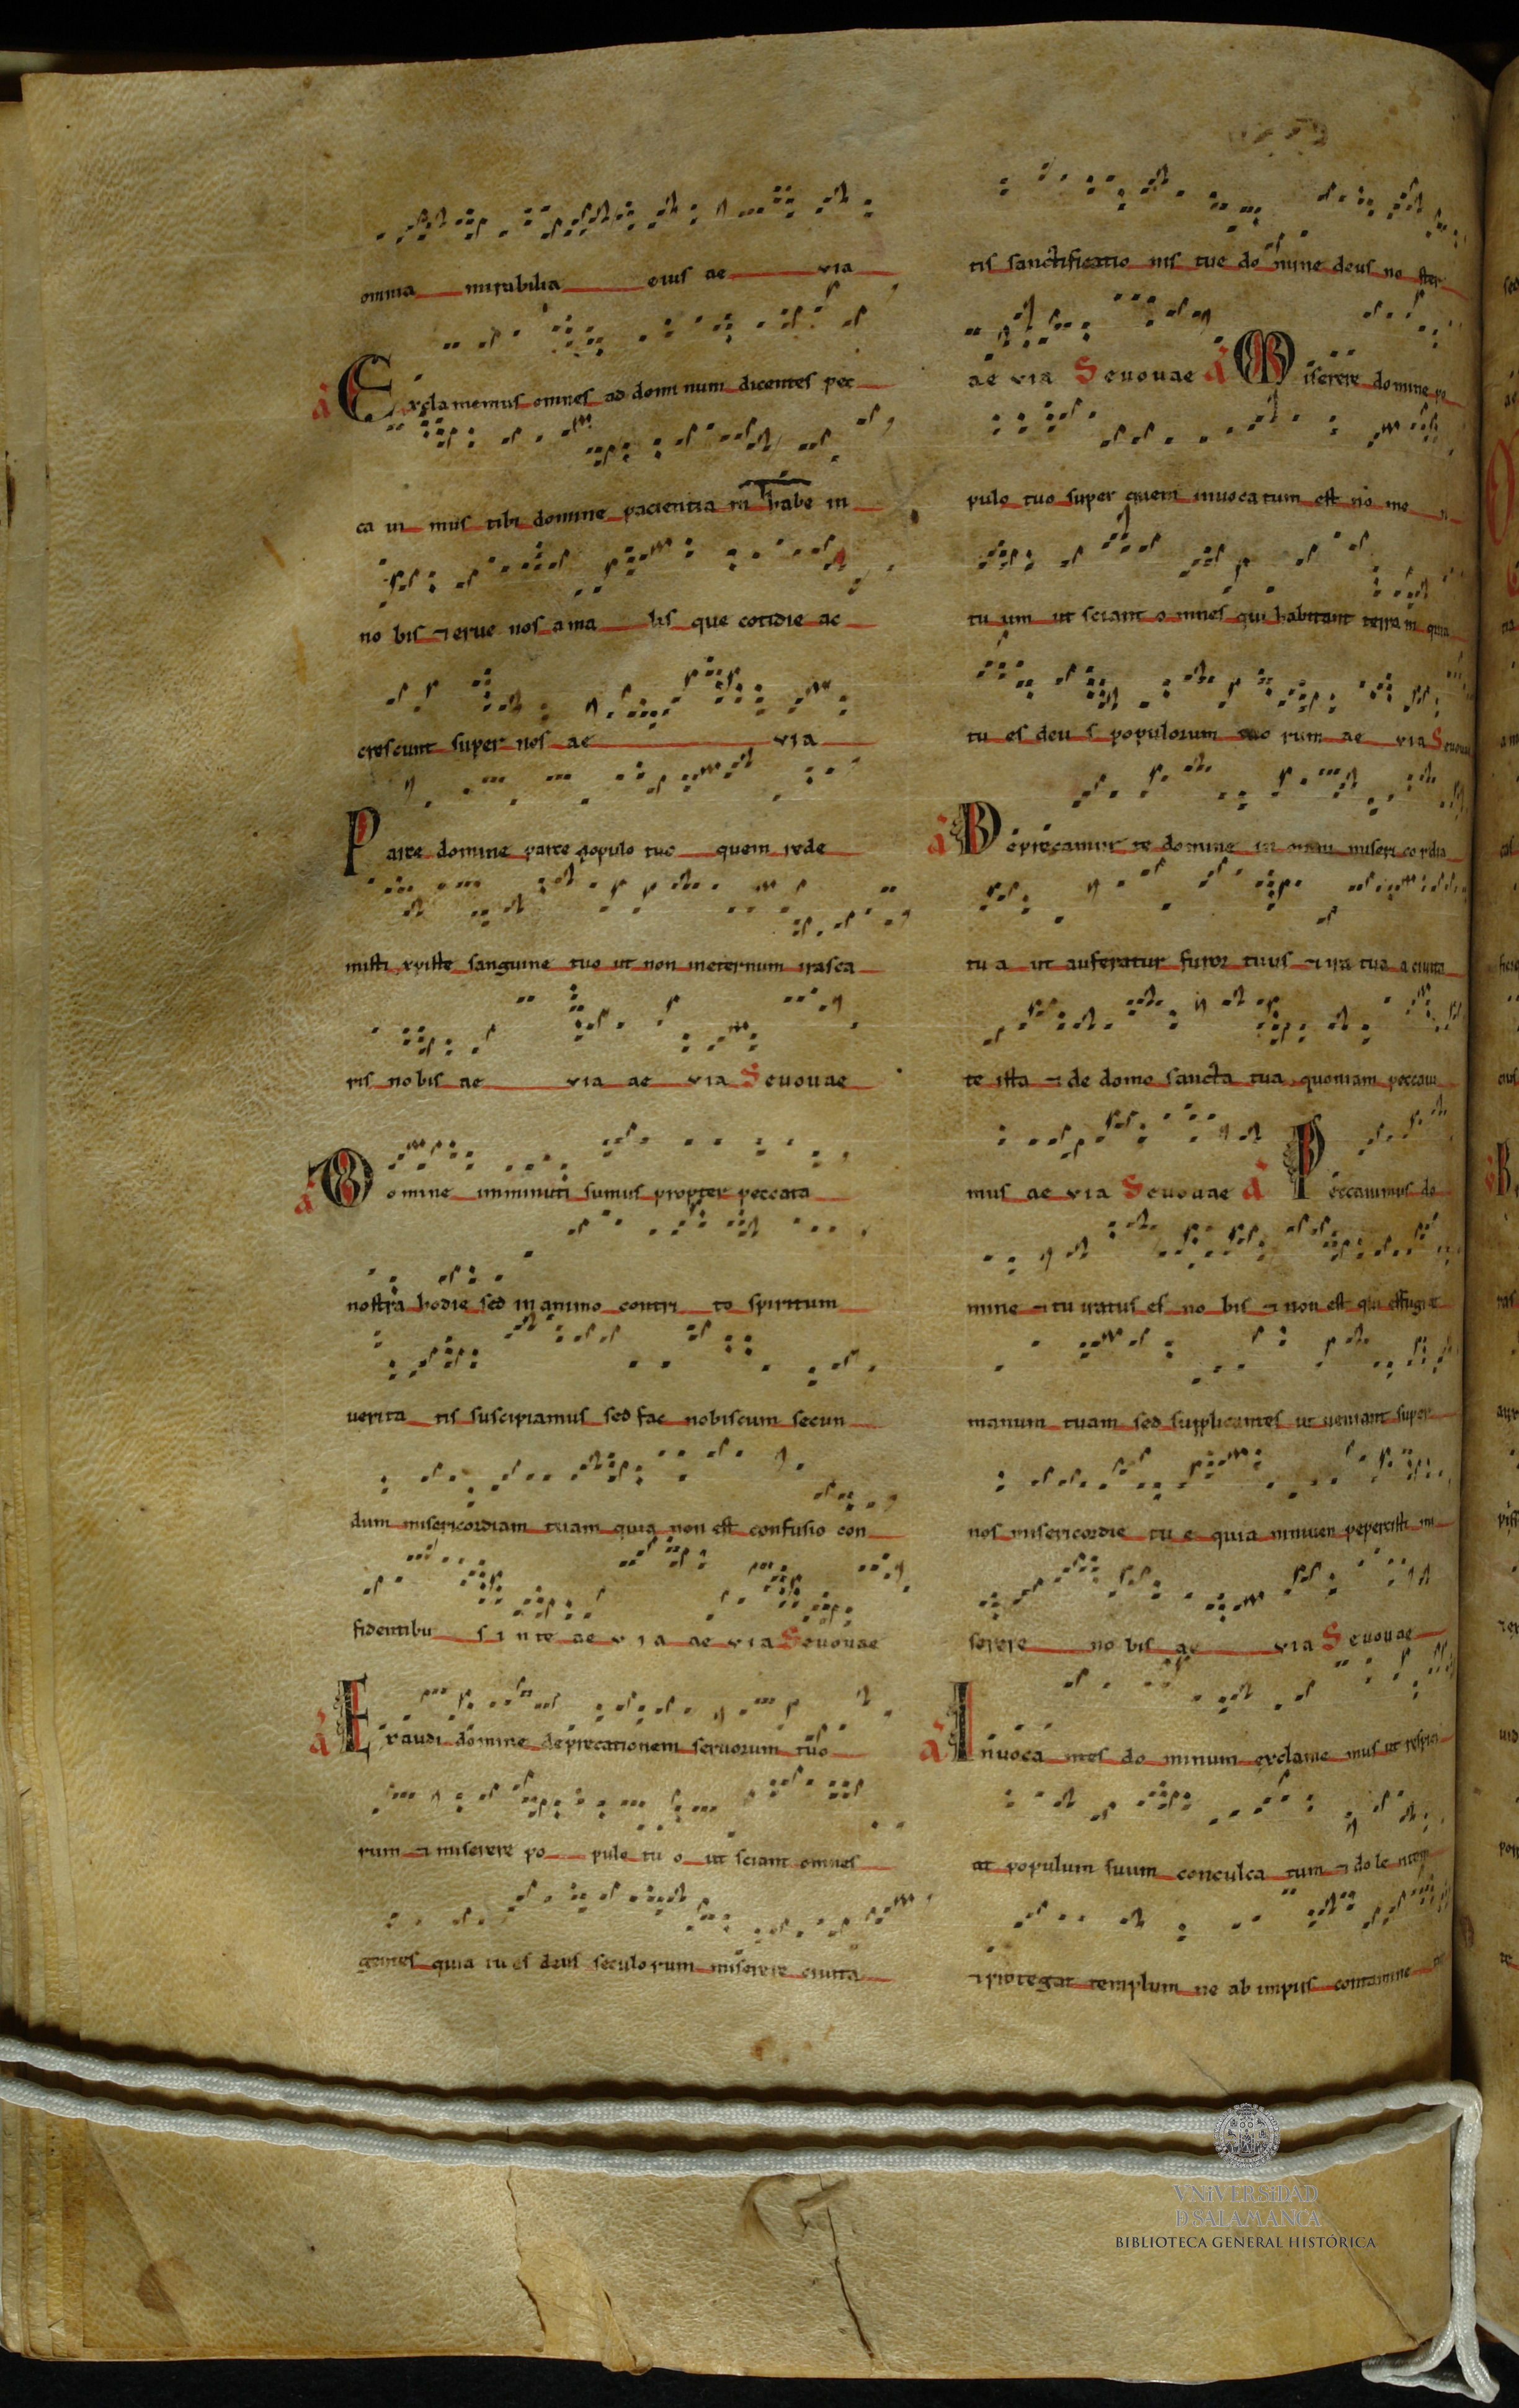 omnia mirabilia eius ae via
a Exclamemus omnes ad dominum dicentes pec
ca ui mus tibi domine pacientiam habe in
no bis ⁊ erue nos a ma lis que cotidie ac
crescunt super nos ae via
Parce domine parce populo tuo quem rede
misti xpiste sanguine tuo ut non ineternum irasca
ris nobis ae via ae via Seuouae
a Domine imminuti sumus propter peccata
nostra hodie sed in animo contri to spiritum
uerita tis suscipiamus sed fac nobiscum secun
dum misericordiam tuam quia non est confusio con
fidentibu s in te ae via ae via Seuouae
a Exaudi domine deprecationem seruorum tuo
rum ⁊ miserere po pulo tu o ut sciant omnes
gentes quia tu es deus seculorum miserere ciuita
tis sanctificatio nis tue do mine deus no ster
ae via Seuouae a Miserere domine po
pulo tuo super quem inuocatum est no me n
tu um ut sciant o mnes qui habitant terram quia
tu es deu s populorum rum ae via Seuouae
a Deprecamur te domine in omni misericordia
tu a ut auferatur furor tuus ⁊ ira tua a ciuita
te ista ⁊ de domo sancta tua quoniam peccaui
mus ae via Seuouae a Peccauimus do
mine ⁊ tu iratus es no bis ⁊ non est qui effugiat
manum tuam sed supplicantes ut ueniant super
nos misericordie tu e quia niniuen pepercisti mi
serere no bis ae via Seuouae
a Inuoca ntes do minum exclame mus ut respici
at populum suum conculca tum ⁊ dole ntem
⁊ protegat templum ne ab impiis contamine
VNiVERSiDAD
D SALAMANCA
BIBLIOTECA GENERAL HISTÓRICA